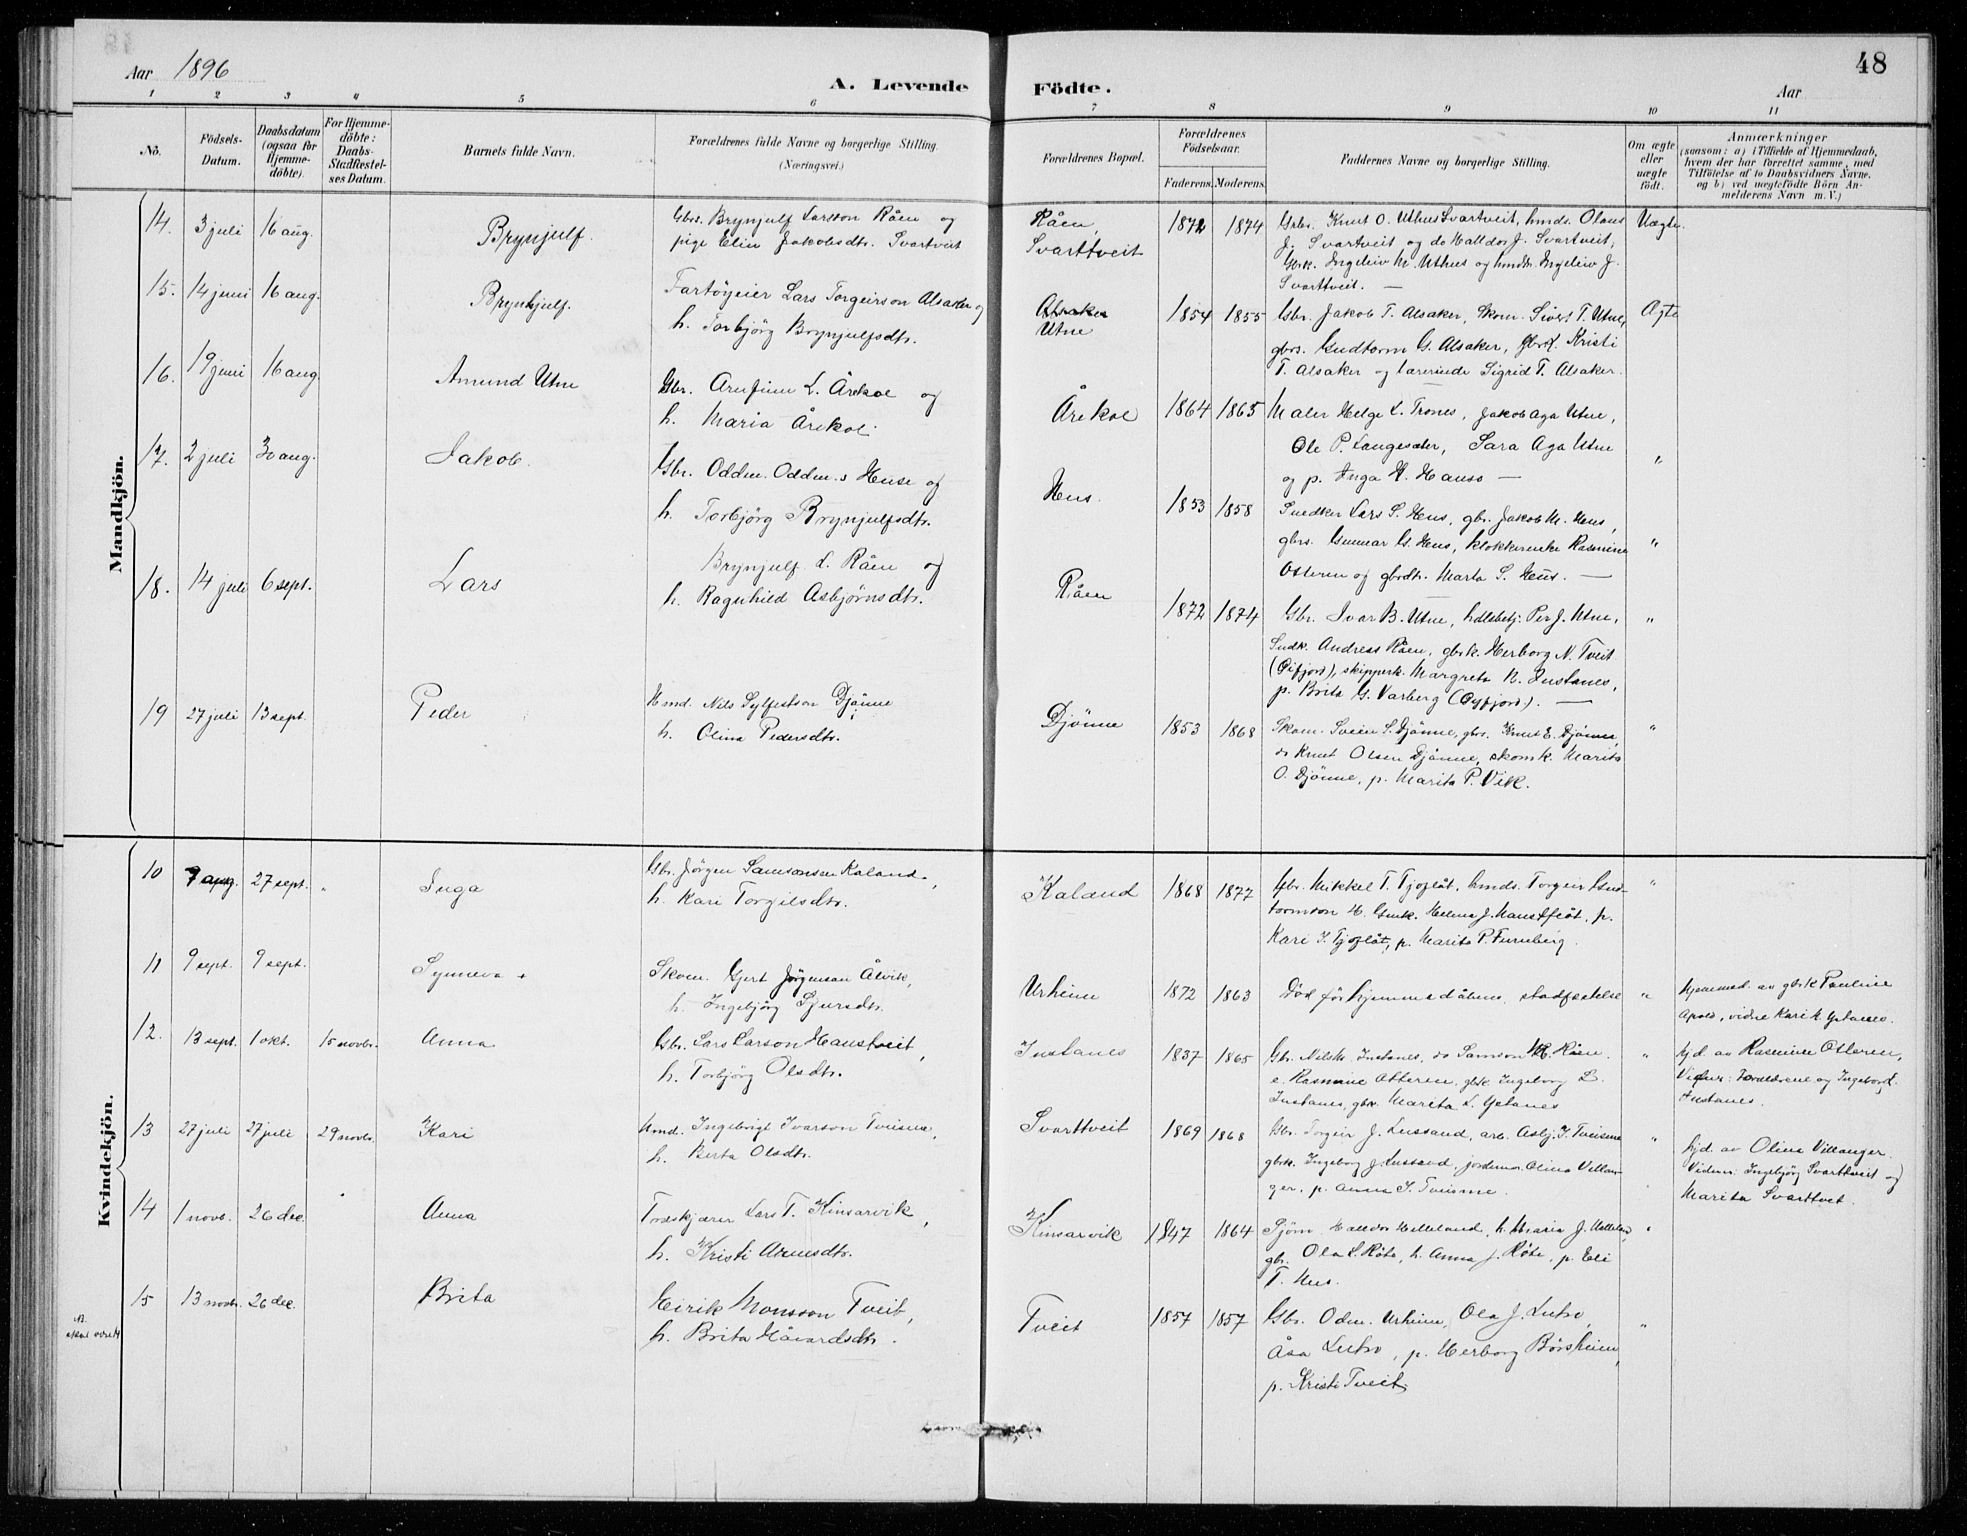 48
Aar 1896
A. Levende Födte.
Aar
1 2 3 4 5 6 7 8 9 10 11
No.
Födsels-Datum.
Daabsdatum (ogsaa for Hjemme-döbte).
For Hjemme-döbte: Daabs-Stadfæstel-ses Datum.
Barnets fulde Navn.
Forældrenes fulde Navne og borgerlige Stilling.
(Næringsvei.)
Forældrenes Bopæl.
Forældrenes Födselsaar.
Faderens. Moderens.
Faddernes Navne og borgerlige Stilling.
Om ægte eller uægte födt.
Anmærkninger
(saasom: a) i Tilfælde af Hjemmedaab, hvem der har forrettet samme, med Tilföielse af to Daabsvidners Navne. og b) ved uægtefödte Börn Anmelderens Navn m. V.)
Mandkjön.
14. 3 juli 16 aug. Brynjulf.
Gbr. Brynjulf Larsson Råen og
pige Elin Jakobsdtr. Svartveit
Råen,
Svarttveit
1872 1874
Gbr. Knut O. Uthus Svartveit, hmds. Olaus
J. Svartveit og do Halldor J. Svartveit,
Gbrk. Ingeleiv M. Uthus og hmdk. Ingeleiv J.
Svarttveit. —
Uægte.
15. 14 juni 16 aug. Brynhjulf.
Fartøyeier Lars Torgeirson Alsaker og
h. Torbjörg Brynjulfsdtr.
Alsaker
Utne
1854 1855
Gbr. Jakob T. Alsaker, Skom. Sivert T. Utne,
gbrs. Gudtorm G. Alsaker, gbrd. Kristi
T. Alsaker og lærerinde Sigrid T. Alsaker.
Ægte
16. 19 juni 16 aug. Amund Utne
Gbr. Arnfinn L. Årekol og
h. Maria Årekol
Årekol
1864 1865
Maler Helge L. Trones, Jakob Aga Utne,
Ole P. Langesæter, Sara Aga Utne
og p. Inga H. Hauso —
"
17. 2 juli 30 aug. Jakob.
Gbr. Oddm. Oddm.s Huse og
h. Torbjörg Brynjulfsdtr.
Hus.
1853 1858
Snedker Lars S. Hus, gbr. Jakob M. Hus,
gbrs. Gunnar G. Hus, klokkerenke Rasmine
Otteren og gbrdtr. Marta S. Hus. —
"
18. 14 juli 6 sept. Lars
Brynjulf L. Råen og
h. Ragnhild Asbjørnsdtr.
Råen
1872 1874
Gbr. Ivar B. Utne, hdlsbetj. Per J. Utne,
Snedk. Andreas Råen, gbrk. Herborg N. Tveit
(Øifjord), skipperk. Margreta N. Instanes,
p. Brita G. Varberg (Øyfjord). —
"
19 27 juli 13 sept. Peder
Hmd. Nils Sylfestson Djönne
h. Olina Pedersdtr.
Djönne
1853 1868
Skom. Svein S. Djönne, gbr. Knut E. Djönne,
do Knut Olsen Djönne, skomk. Marita
O. Djönne, p. Marita P. Vik.
"
Kvindekjön.
10 9 aug. 27 sept. " Inga
Gbr. Jörgen Samsonsen Kaland,
h. Kari Torgilsdtr.
Kaland
1868 1877
Gbr. Mikkel T. Tjoflåt, hmds. Torgeir Gud-
tormson H. Gmk. Helena J. Haustflöt, p.
Kari T. Tjoflåt, p. Marita P. Furuberg.
"
11 9 sept. 9 sept. Synneva +
Skom. Gjert Jörgenson Ålvik,
h. Ingebjörg Sjursdtr.
Urheim
1872 1863
Död för hjemmedåbens stadfestelse
"
hjemmed. av gbrk Pauline
Apold, vidne Kari
12. 13 sept. 1 okt. 15 novbr. Anna
Gbr. Lars Larson Haustveit,
h. Torbjörg Olsdtr.
Instanes
1837 1865
Gbr. Nils Instanes, do Samson Råen.
e. Rasmine Otteren, gbrk Ingeborg L.
Instanes, gbr. Marita L. Ystanes
"
hjd. av Rasmine Otteren,
Vidner: Forældrene og Ingeborg L.
Instanes.
13 27 juli 27 juli 29 novbr. Kari
Hmd. Ingebrigt Ivarson Tveisme,
h. Berta Olsdtr.
Svarttveit
1869 1868
Gbr. Torgeir J. Lussand, arb. Asbj. I. Tveisme
gbrk. Ingeborg J. Lussand, jordemor Olina Villan-
ger, p. Anna I. Tveisme.
"
hjd. av Olina Villanger.
Vidner: Ingebjörg Svarttveit og
Marita Svarttveit.
14 1 novb. 26 dec. Anna
Træskjærer Lars T. Kinsarvik,
h. Kristi Amundsdtr.
Kinsarvik
1847 1864
Halldor Helleland, h. Maria J.
gbr. Ola L. Röte, h. Anna J. Röte, p. Eli
T. Hus.
"
15 13 novbr. 26 dec. Brita
Eirik Monsson Tveit,
h. Brita Håvardsdtr.
Tveit
1857 1857
Gbr. Odm. Urheim, Ola J. Lutro,
Åsa Lutro, p. Herborg Börsheim,
p. Kristi Tveit.
"